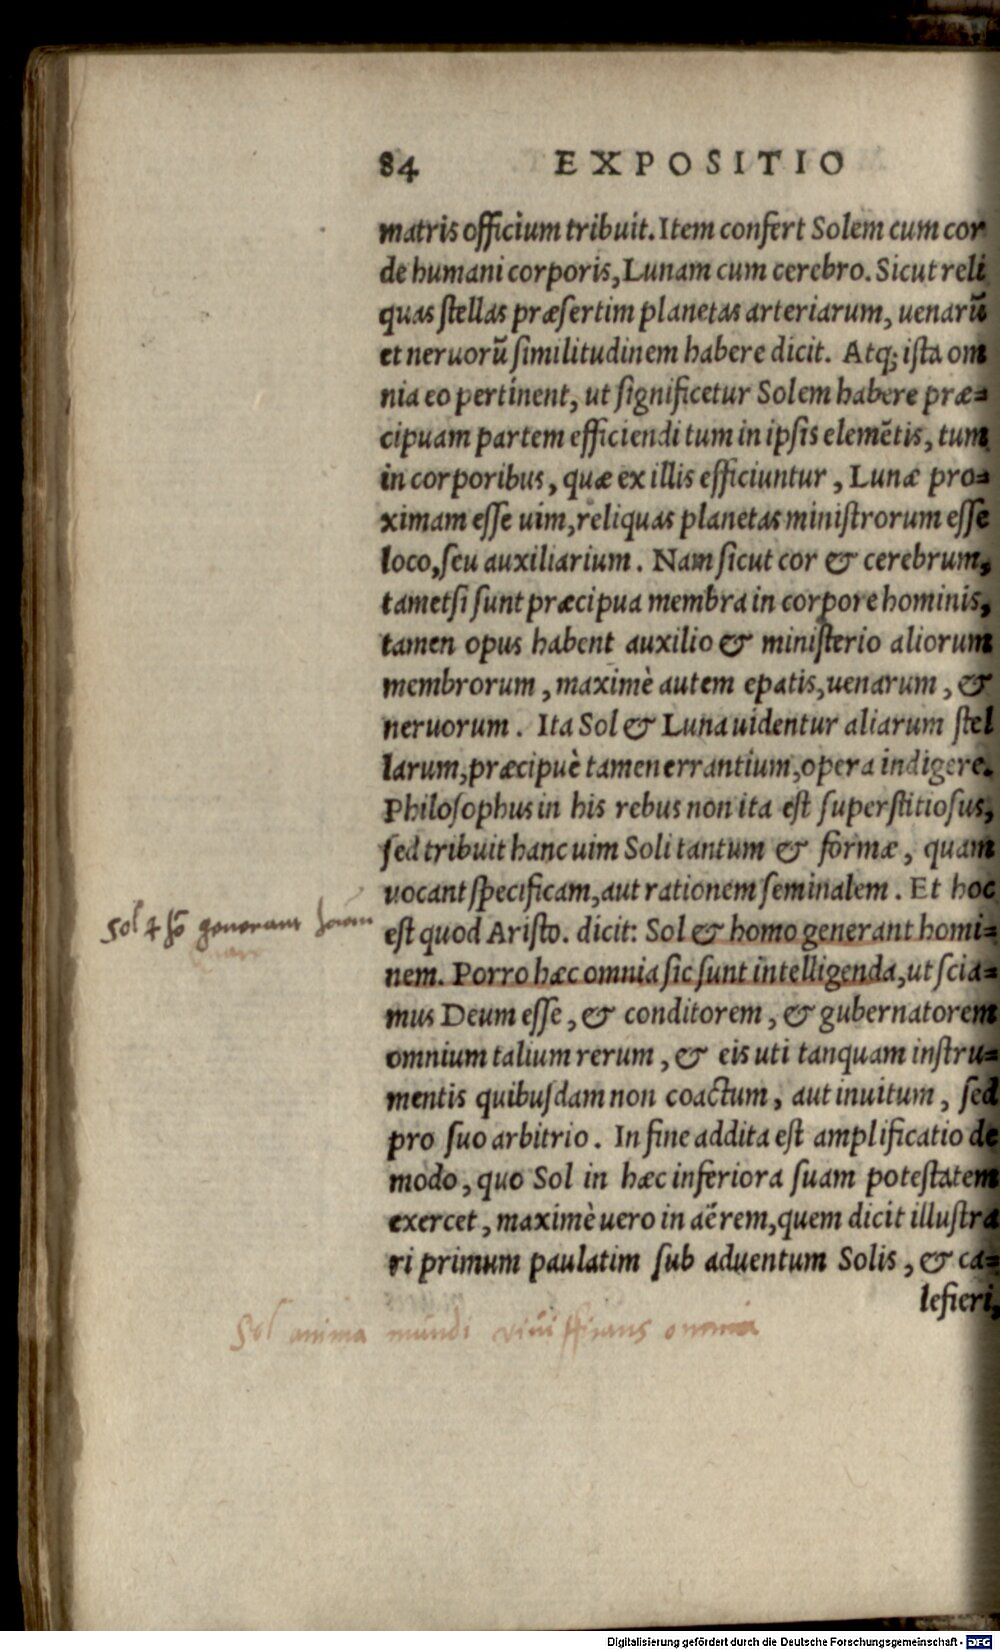 84 EXPOSITIO
matris officium tribuit. Item confert Solem cum cor
de humani corporis, Lunam cum cerebro. Sicut reli
quas stellas præsertim planetas arteriarum, uenarũ
et neruorũ similitudinem habere dicit. Atq; ista om
nia eo pertinent, ut significetur Solem habere præ=
cipuam partem efficiendi tum in ipsis elemẽtis, tum
in corporibus, quæ ex illis efficiuntur, Lunæ pro=
ximam esse uim, reliquas planetas ministrorum esse
loco, seu auxiliarium. Nam sicut cor & cerebrum,
tametsi sunt præcipua membra in corpore hominis,
tamen opus habent auxilio & ministerio aliorum
membrorum, maximè autem epatis, uenarum, &
neruorum. Ita Sol & Luna uidentur aliarum stel
larum, præcipuè tamen errantium, opera indigere.
Philosophus in his rebus non ita est superstitiosus,
sed tribuit hanc uim Soli tantum & formæ, quam
uocant specificam, aut rationem seminalem. Et hoc
Sol & hõ generant
est quod Aristo. dicit: Sol & homo generant homi=
nem. Porro hæc omnia sic sunt intelligenda, ut scia=
mus Deum esse, & conditorem, & gubernatorem
omnium talium rerum, & eis uti tanquam instru=
mentis quibusdam non coactum, aut inuitum, sed
pro suo arbitrio. In fine addita est amplificatio de
modo, quo Sol in hæc inferiora suam potestatem
exercet, maximè uero in aërem, quem dicit illustra
ri primum paulatim sub aduentum Solis, & ca=
lefieri,
Sol anima mundi viuifficans omnia
Digitalisierung gefördert durch die Deutsche Forschungsgemeinschaft - DFG